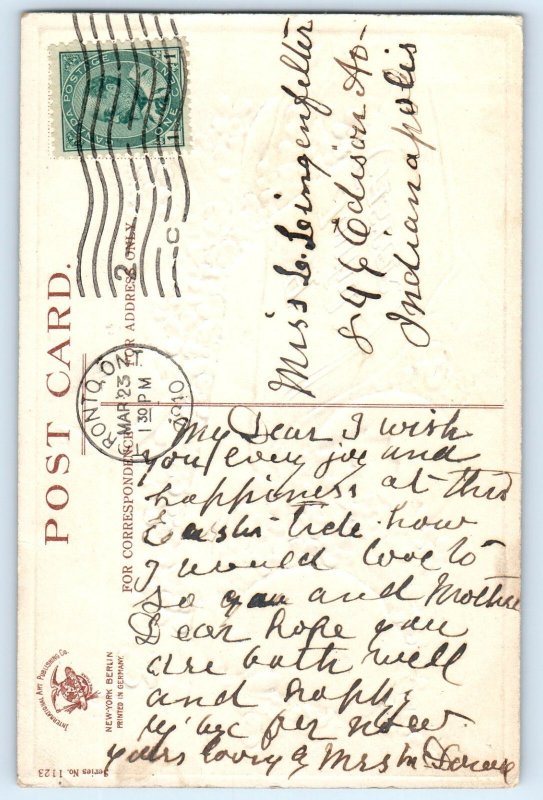 POST CARD.
FOR CORRESPONDENCE
FOR ADDRESS ONLY
POSTAGE
ONE CENT
RONTO. ON
MAR 23
1 30 PM
1910
2
C
Miss L. Leingenfelter
Edison Av-
Indianapolis
My Dear I wish
you every joy and
happiness at this
tide how
I would love to
and Mother
Dear hope you
are both well
and happy
now
yours
Mrs
INTERNATIONAL ART PUBLISHING CO.
NEW-YORK BERLIN
PRINTED IN GERMANY.
Series No. 1123